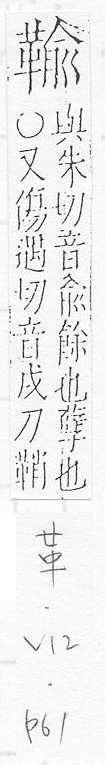 䩱
與朱切音俞餘也孽也
○又傷遇切音戍刀鞘
革
·
V12
·
P61